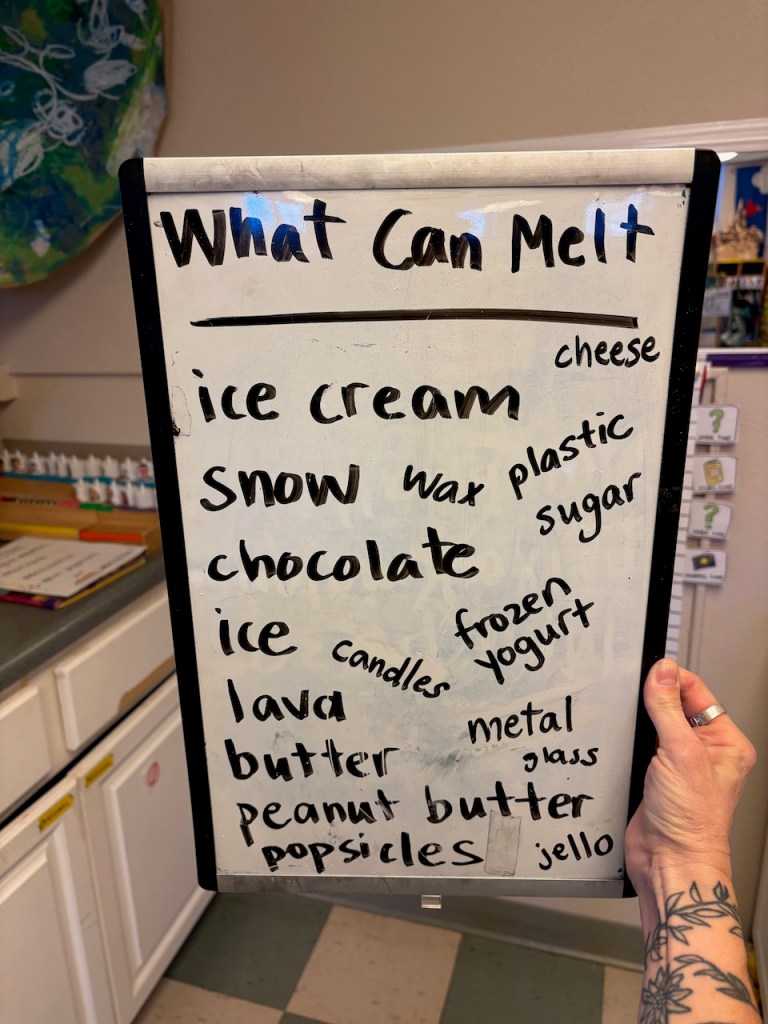 What Can Melt
cheese
ice cream
snow wax plastic
sugar
chocolate
ice candles frozen
yogurt
lava metal
butter glass
peanut butter
popsicles jello